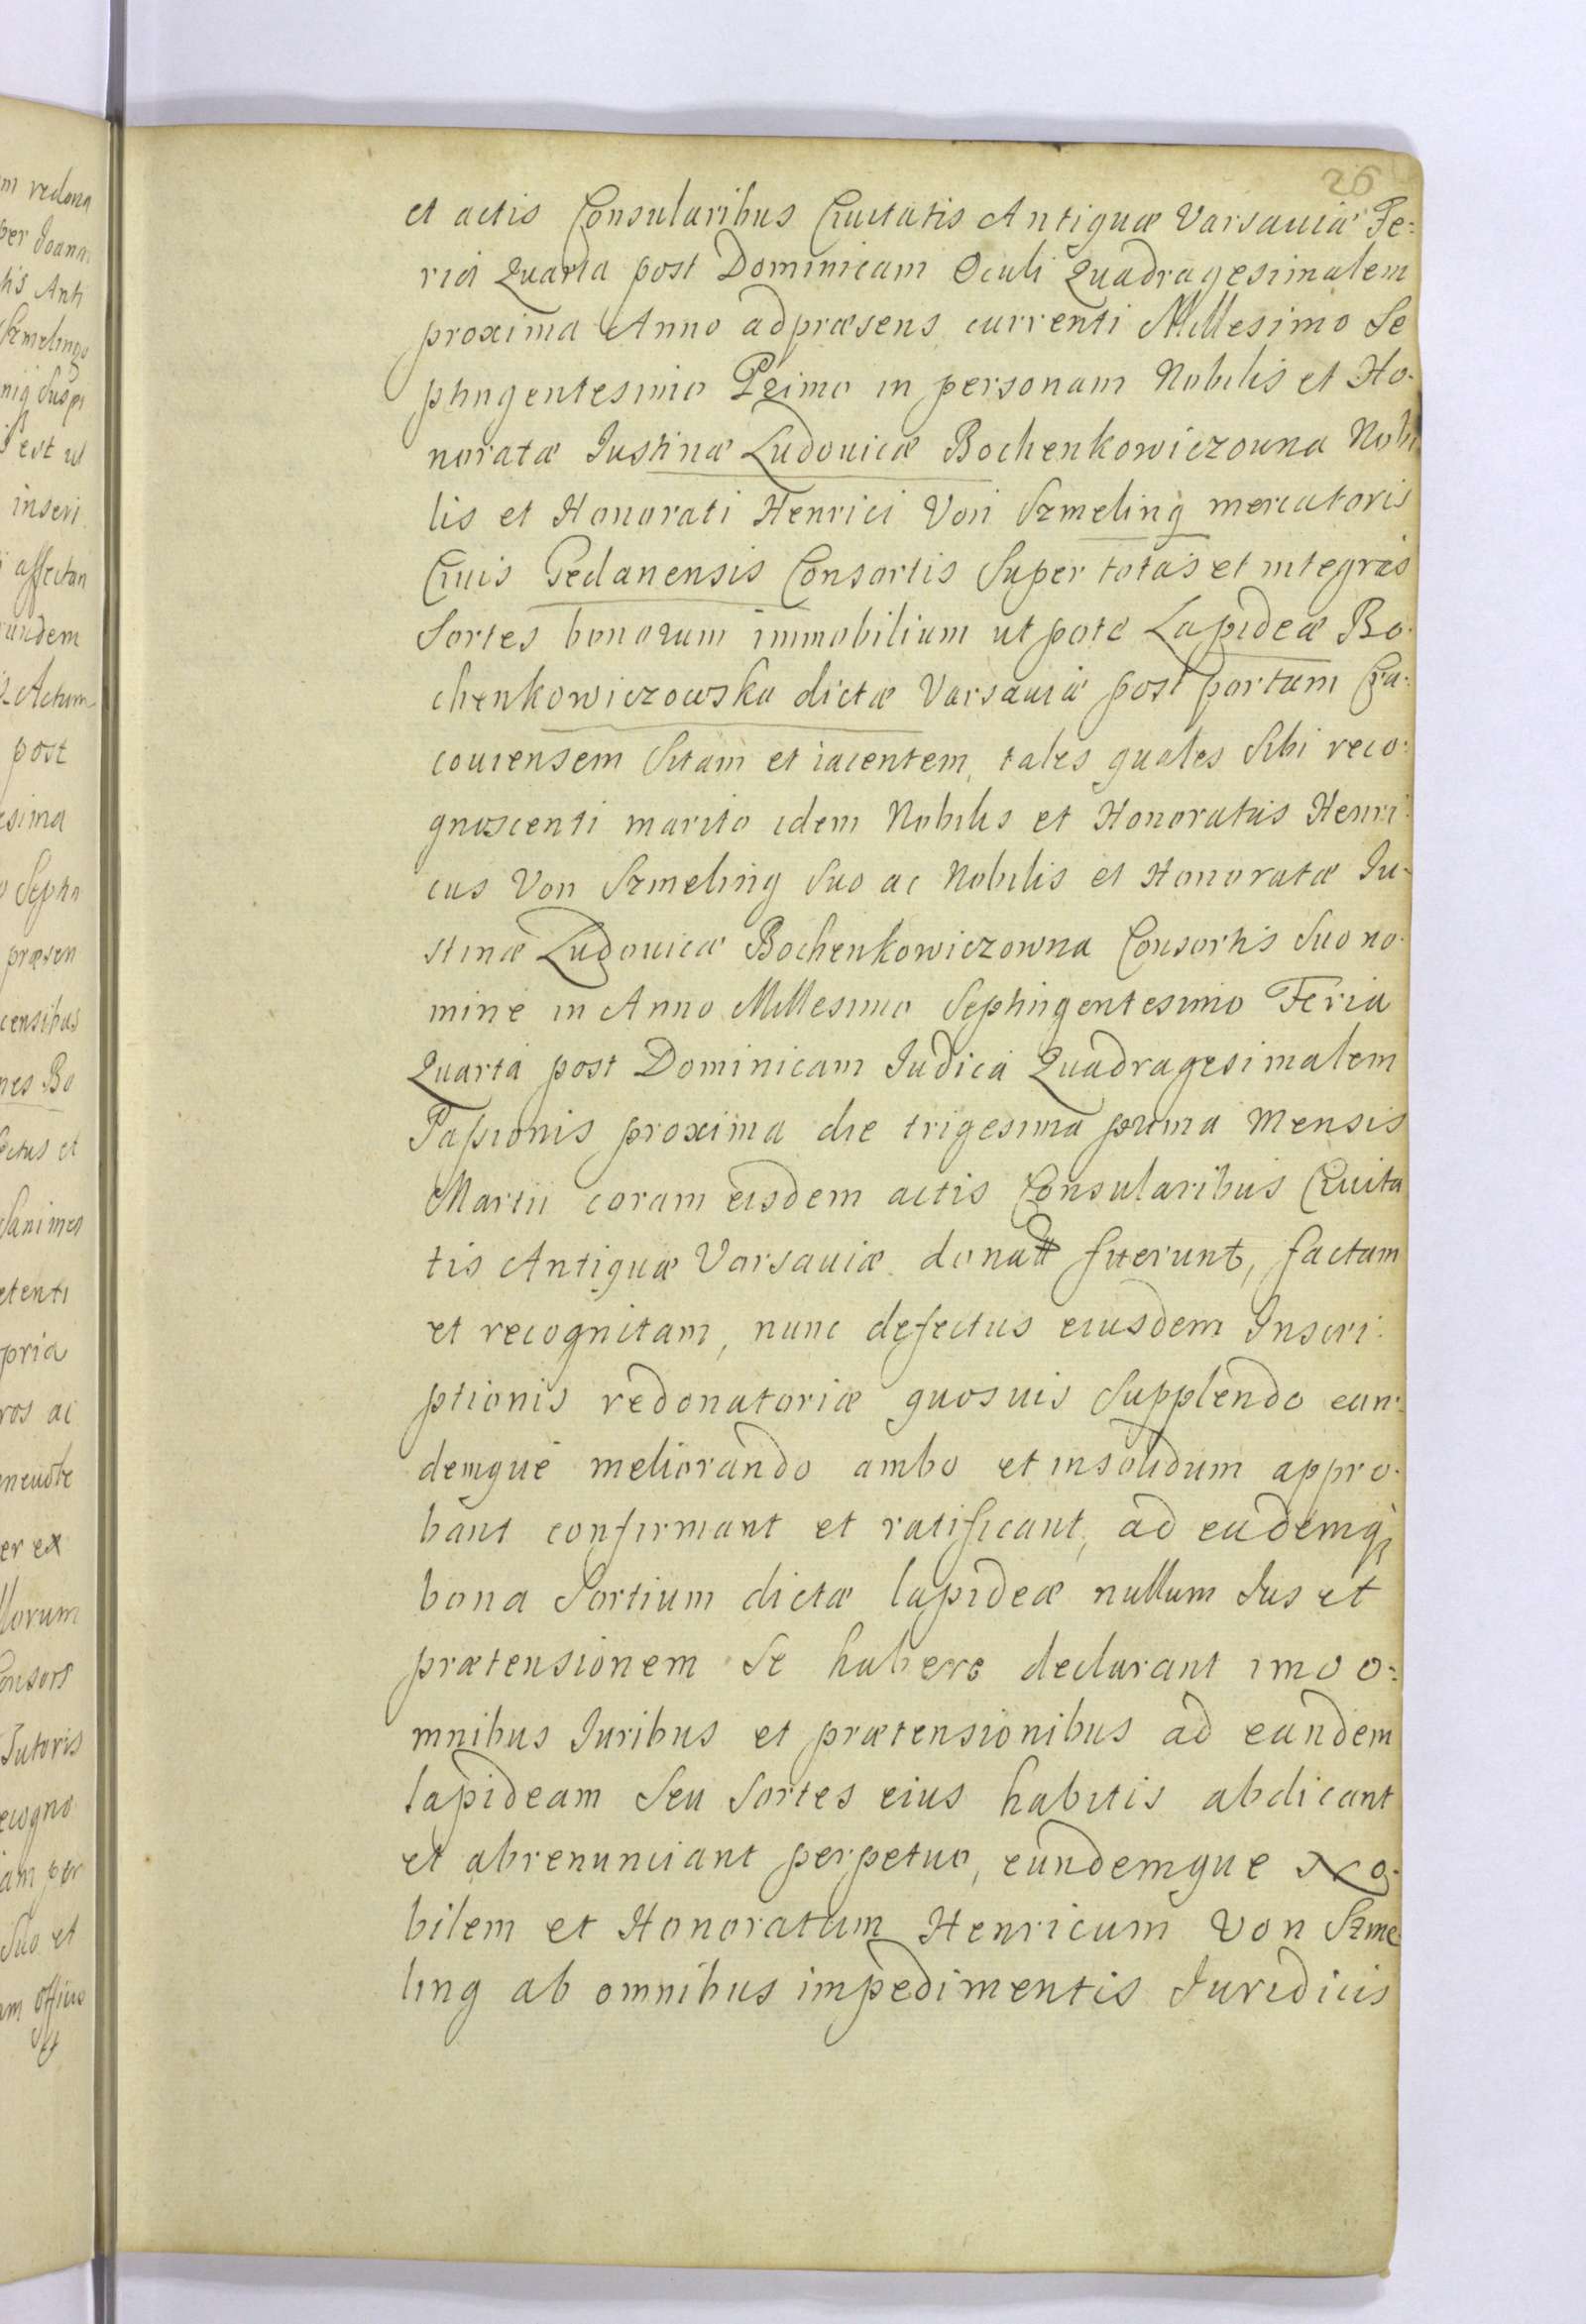 26
et actis Consularibus Ciuitatis Antiquæ Varsauiæ Fe:
ria Quarta post Dominicam Oculi Quadragesimalem
proxima Anno adpræsens currenti Millesimo Se
ptingentesimo Primo in personam Nobilis et Ho.
noratæ Iustinæ Ludouicæ Bochenkowiczowna Nobi
lis et Honorati Henrici Von Szmeling mercatoris
Ciuis Gedanensis Consortis Super totas et integras
Sortes bonorum immobilium utpote Lapideæ Bo.
chenkowiczowska dictæ Varsauiæ post portam Cra:
couiensem Sitam et iacentem, tales quales Sibi reco:
gnoscenti marito idem Nobilis et Honoratus Henri
cus Von Szmeling Suo ac Nobilis et Honoratæ Iu-
stinæ Ludouicæ Bochenkowiczowna Consortis Suo no.
mine in Anno Millesimo Septingentesimo Feria
Quarta post Dominicam Iudica Quadragesimalem
Passionis proxima die trigesima prima Mensis
Martii coram eisdem actis Consularibus Ciuita
tis Antiquæ Varsauiæ fuerunt, factam
et recognitam, nunc defectus eiusdem Inscri:
ptionis redonatoriæ quosuis Supplendo ean:
demque meliorando ambo et insolidum appro.
bant confirmant et ratificant, ad eademq;
bona Sortium dictæ lapideæ nullum Ius et
prætensionem Se habere declarant imo o:
mnibus Iuribus et prætensionibus ad eandem
lapideam Seu Sortes eius habitis abdicant
et abrenunciant perpetuo, eundemque No.
bilem et Honoratum Henricum Von Szme
ling ab omnibus impedimentis Iuridicis